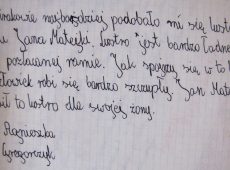 krakowie najbardziej podobało mi się lust
u Jana Matejki. Lustro jest bardzo ładne
pozłacanej ramie. Jak spojrzy się w to l
złowiek robi się bardzo szczupły. Jan Mate
ił to lustro dla swojej żony.
Agnieszka
Grzegorczyk